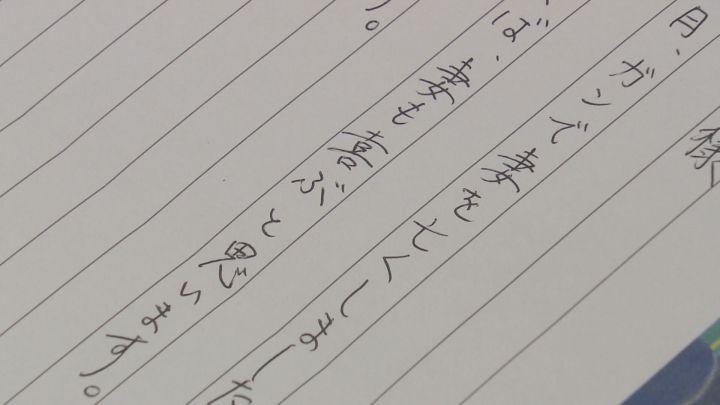 様
月、ガンで妻を亡くしました
ば、妻も喜ぶと思います。
。